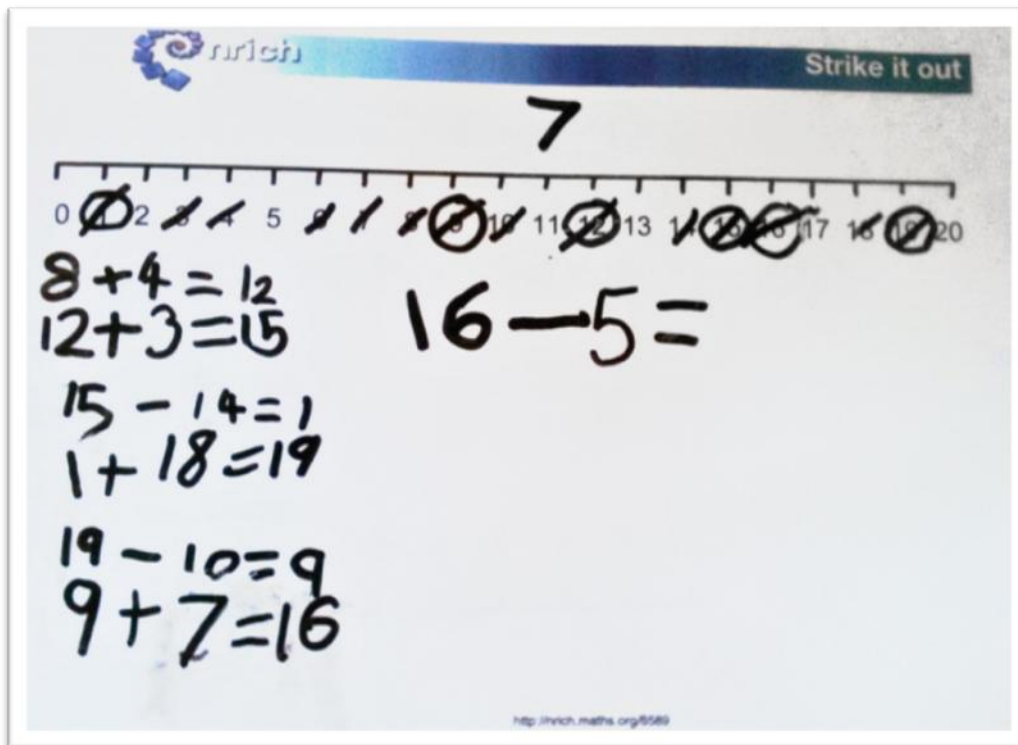 nrich
Strike it out
7
0 1 2 3 4 5 6 7 8 9 10 11 12 13 14 15 16 17 18 19 20
8 + 4 = 12
12 + 3 = 15
15 - 14 = 1
1 + 18 = 19
19 - 10 = 9
9 + 7 = 16
16 - 5 =
http://nrich.maths.org/6589